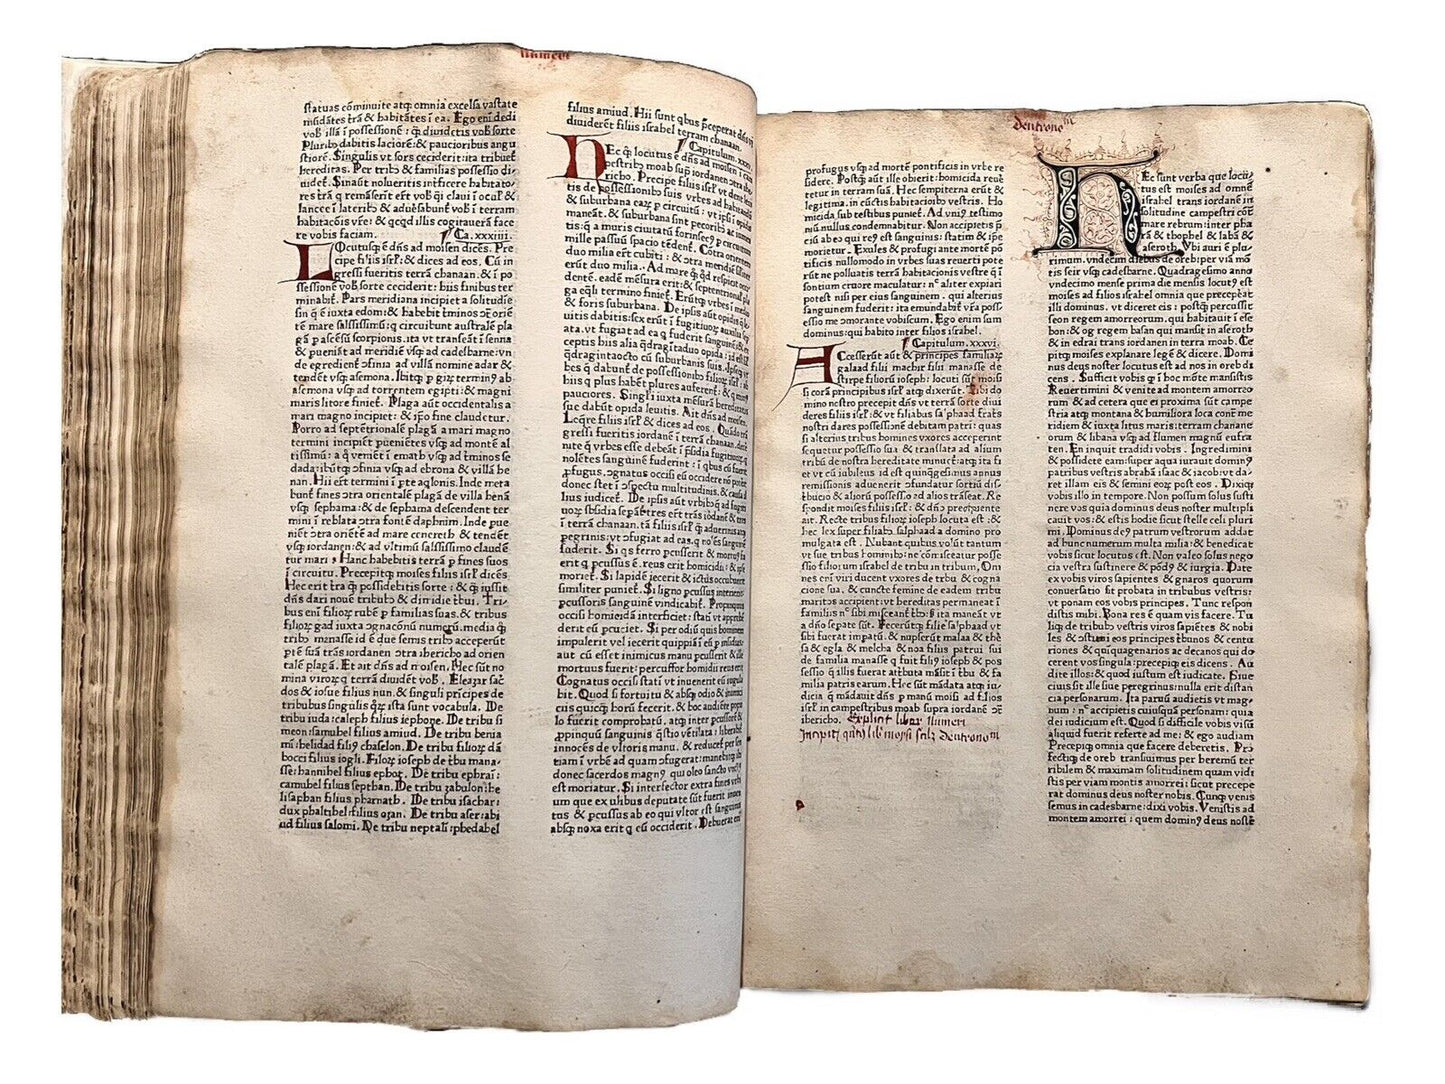 Numeri
statuas cōminuite atq; omnia excelsa vastate
mūdātes trā & habitātes ī ea. Ego enī dedi
vob illā ī possessionē: q̄ diuidetis vob sorte
Pluribꝰ dabitis laciorē: & paucioribus angu
stiorē. Singulis vt sors ceciderit: ita tribuet̄
hereditas. Per tribꝰ & familias possessio di-
uidet̄. Sinaūt nolueritis inficere habitato-
res trā q̄ remāserīt erūt vob q̄si claui ī ocul' &
lancee ī lateribꝰ & aduēsabunt vob ī terram
habitacōis vr̄e: & qcqd illis cogitauerā face
re vobis faciam. Ca. xxxiiii
LOcutusq; ē dn̄s ad moisen dicēs. Pre
cipe filiis isrl' & dices ad eos. Cū in
gressi fueritis terrā chanaan: & ī po
ssessionē vob sorte ceciderit: hiis finibus ter
minabit̄. Pars meridiana incipiet a solitudīe
sin q̄ ē iuxta edom: & habebit t̄minos ɔt̄ oriē
tē mare salsissimū: q circuibunt australē pla
gā p ascēsū scorpionis. ita vt transeāt ī senna
& pueniāt ad meridiē vsq; ad cadesbarne: vn
de egredient̄ ɔfinia ad villā nomine adar &
tendēt vsq; asemona. Ibitq; p girꝝ terminꝰ ab
asemona vsq; ad torrentem egipti: & magni
maris litore finiet̄. Plaga aūt occidentalis a
mari magno incipiet: & ip̄o fine claudetur.
Porro ad septētrionalē plagā a mari magno
termini incipiēt pueniētes vsq; ad montē al
tissimū: a q̄ veniēt ī emath vsq; ad t̄minos se
dada: ibūtq; ɔfinia vsq; ad ebrona & villā he
nan. Hii erūt termini ī pte aqlonis. Inde meta
bunt̄ fines ɔtra orientalē plagā de villa henā
vsq; sephama: & de sephama descendent ter
mini ī reblata ɔtra fontē daphnim. Inde pue
niēt ɔtra oriētē ad mare cenereth & tendēt
vsq; iordanen: & ad vltimū salsissimo claudē
tur mari. Hanc habebitis terrā p fines suos
ī circuitu. Precepitq; moises filiis isrl' dicēs
Hec erit tra q̄ possidebitis sorte: & q̄ iussit
dn̄s dari nouē tribubꝰ & dimidie tbui. Tri-
bus enī filioꝝ rubē p familias suas. & tribus
filioꝝ gad iuxta ɔgnacōnū numeꝝ. media q̄
tribꝰ manasse id ē due semis tribꝰ acceperūt
ptē suā trās iordanen ɔtra iherichо ad orien
talē plagā. Et ait dn̄s ad moisen. Hec sūt no
mina viroꝝ q terrā diuidēt vob. Eleazar sac̄
dos & iosue filius nun. & singuli prīcipes de
tribubus singulis qͦꝝ ista sunt vocabula. De
tribu iuda: caleph filius iephone. De tribu si
meon: samuhel filius amiud. De tribu benia
mī: helidad filiꝰ chaselon. De tribu filioꝝ dā
bocci filius iogli. Filioꝝ ioseph de tbu mana-
sse: hannihel filius ephot. De tribu ephraī:
camuhel filius septhan. De tribu zabulon: he
lisaphan filius pharnath. De tribu isachar:
dux phaltihel: filius ozan. De tribu aser: abi
ud filius salomi. De tribu neptali: phedahel
filius amiud. Hii sunt qbus p̄ceperat dn̄s vt
diuiderēt filiis israhel terram chanaan.
Capitulum. xxxv
HEc q̄ locutus ē dn̄s ad moisen ī cam
pestribꝰ moab suꝑ iordanen ɔtra ihe
richo. Precipe filiis isrl' vt dent leui
tis de possessionibꝰ suis vrbes ad habitandū
& suburbana eaꝝ p circuitū: vt ip̄si ī opidis
maneāt. & suburbana sint pecoribꝰ ac iumen
tis: q̄ a muris ciuitatū forinsecꝰ p circuitum
mille passuū spacio tēdent̄. Cōtra orientem
duo milia erūt cubiti: & ɔtra meridiē similiter
erūt duo milia. Ad mare q̄ qd respicit occi
dentē. eadē mēsura erit: & septentrional' pla
ga eq̄li termino finiet̄. Erūtq; vrbes ī medio
& foris suburbana. De ipsis aūt opidis q̄ le
uitis dabitis: sex erūt ī fugitiuoꝝ auxilia sep
ata. vt fugiat ad ea q̄ fuderit sanguinē: & ex
ceptis hiis alia q̄dragītaduo opida: id est sīl'
q̄dragintaocto cū suburbanis suis. Ipseq; vr
bes q̄ dabunt̄ de possessionibꝰ filioꝝ isrl' ab
hiis q plus habēt plures auferent̄: & q minꝰ
pauciores. Singl'i iuxta mēsurā hereditatis
sue dabūt opida leuitis. Ait dn̄s ad moisen.
Loq̄re filiis isrl' & dices ad eos. Quādo trās
gressi fueritis iordanē ī terrā chanaan. decer
nite q̄ vrbes esse debeāt ī p̄sidia fugitiuoꝝ. q
nolētes sanguinē fuderint: ī qbus cū fuerit
ꝓfugus. ɔgnatus occisi eū occidere nō poterit
donec stet ī ɔspectu multitudinis. & causa il
lius iudicet̄. De ipsis aūt vrbibꝰ q̄ ad fugiti
uoꝝ subsidia sepātur tres erūt trās iordanē & tres
ī terrā chanaan. tā filiis isrl' q̄ aduenis atq;
peregrinis: vt ɔfugiat ad eas. q nō es sanguinē
fuderit. Si qs ferro pcusserit & mortuꝰ fu
erit q pcussus ē. reus erit homicidii: & ip̄e
moriet̄. Si lapidē iecerit & ictus occubuerit
similiter puniet̄. Si ligno pcussus interierit
pcussoris sanguinē vindicabit̄. Propinquꝰ
occisi homicidā interficiet: stati vt apprehē
derit eū pcuciet. Si per odiū quis hominem
impulerit vel iecerit quippiā ī eū p insidias
aut cū esset inimicus manu pcusserit & ille
mortuus fuerit: percussor homicidii reus erit
Cognatus occisi statī vt inuenerit eū iugula
bit. Quod si fortuitu & absq; odio & inimici
ciis quicq; horū fecerit. & hoc audiēte popu
lo fuerit comprobatū. atq; inter pcussorē &
ꝓpinquū sanguinis q̄stio ventilata: liberabit̄
innocēs de vltoris manu. & reducet̄ per sen
tentiam ī vrbē ad quam ɔfugerat: manebitq; ibi
donec sacerdos magnꝰ qui oleo sancto vnctꝰ
est moriatur. Si intersector extra fines vrbi
um que exulibus deputate sūt fuerit inuen
tus & pcussus ab eo qui vltor est sanguinis
absq; noxa erit q eū occiderit. Debuerat enī
Deutronomiū
profugus vsq; ad mortē pontificis in vrbe re
sidere. Postq; aūt ille obierit: homicida reue
tetur in terram suā. Hec sempiterna erūt &
legitima. in cūctis habitacioībꝰ vestris. Ho
micida sub testibus puniet̄. Ad vniꝰ testimo
niū nullus condemnabitur. Non accipietis p
ciū ab eo qui reꝰ est sanguinis: statim & ip̄e
morietur. Exules & profugi ante mortē pō
tificis nullomodo in vrbes suas reuerti pote
runt ne polluatis terrā habitacionis vestre q̄ ī
sontium cruore maculatur: nec̄ aliter expiari
potest nisi per eius sanguinem. qui alterius
sanguinem fuderit: ita emundabit̄ vr̄a poss
essio me ɔmorante vobiscum. Ego enim sum
dominus: qui habito inter filios israhel.
Capitulum. xxxvi.
ACcesserūt aūt & principes familiaꝝ
galaad filii machir filii manasse de
stirpe filiorū ioseph: locuti sūt moisi
si corā principibus isrl' atq; dixerūt. Tibi do
mino nostro precepit dn̄s vt terrā sorte diui
deres filiis isrl': & vt filiabus salphaad fratris
nostri dares possessionem debitam patri: quas
si alterius tribus homines vxores acceperint
sequetur possessio sua & translata ad alium
tribū de nostra hereditate minuet̄: atq; ita fi
et vt cū iubileus id est quinq̄gesimus annus
remissionis aduenerit ɔfundatur sortiū dis
t̄bucio & alioꝝ possessio ad alios trāseat. Re
spondit moises filiis isrl'. & dn̄o precipiente
ait. Recte tribus filioꝝ ioseph locuta est: &
hec lex super filiabꝰ salphaad a domino pro
mulgata est. Nubant quibus volūt tantum
vt sue tribus hominibꝰ: ne ɔmisceatur posse
ssio filioum israhel de tribu in tribum. Om
nes eni viri ducent vxores de tribu & cogna
cione sua. & cuncte femine de eadem tribu
maritos accipient: vt hereditas permaneat ī
familiis nec̄ sibi misceant̄ tbꝰ. s ita maneāt vt
a dn̄o sepate sūt. Fecerūtq; filie salphaad vt
sibi fuerat impatū. & nupserūt maala & ther
sa & egla & melcha & noa filiis patrui sui
de familia manasse q fuit filiꝰ ioseph & pos
sessio q̄ illis fuerat attributa māsit ī tbu & fa
milia patris earum. Hec sūt mādata atq; iu
dicia q̄ mādauit dn̄s p manū moisi ad filios
isrl' in campestribus moab supra iordanē ɔt̄
ihericho. Explicit liber Numeri
Incipit quītꝰ lib' moysi scil'z deutronomī
HEc sunt verba que locu-
tus est moises ad omnē
israhel trans iordanē in
solitudine campestri cōtͣ
mare rebrum: inter pha
rā & thophel & labā &
aseroth: vbi auri ē plu-
rimum. vndecim diebus de oreb: per viā mō
tis seir vsq; cadesbarne. Quadragesimo anno
vndecimo mense prima die mensis locutꝰ est
moises ad filios israhel omnia que precepēat
illi dominus. vt diceret eis: postq; percussit
seon regem amorreorum. qui habitauit ī ese
bon: & og regem basan qui mansit in aseroth
& in edrai trans iordanen in terra moab. Ce
pitq; moises explanare legē & dicere. Domi
nus deus noster locutus est ad nos in oreb di
cens. Sufficit vobis q̄ ī hoc mōte mansistis
Reuertimini & venite ad montem amorreo
rum & ad cetera que ei proxima sūt campe
stria atq; montana & humiliora loca contͣ me
ridiem & iuxta litus maris: terram chanane
orum & libani vsq; ad flumen magnū eufra
ten. En inquit tradidi vobis. Ingredimini
& possidete eam: super qua iurauit dominꝰ
patribus vestris abrahā isaac & iacob: vt da-
ret illam eis & semini eoꝝ post eos. Dixiq;
vobis illo in tempore. Non possum solus susti
nere vos quia dominus deus noster multipli
cauit vos: & estis hodie sicut stelle celi pluri
mi. Dominus deꝰ patrum vestrorum addat
ad hunc numerum multa milia: & benedicat
vobis sicut locutus est. Non valeo solus nego
cia vestra sustinere & pōdꝰ & iurgia. Date
ex vobis viros sapientes & gnaros quorum
conuersatio sit probata in tribubus vestris:
vt ponam eos vobis principes. Tunc respon
distis mihi. Bona res ē quam vis facere. Tu
liq; de tribubꝰ vestris viros sapiētes & nobi
les & ɔstitui eos principes tbunos & centu
riones & quinquagenarios ac decanos qui do
cerent vos singula: precepiq; eis dicens. Au
dite illos: & quod iustum est iudicate. Siue
ciuis sit ille siue peregrinus: nulla erit distan
cia personarum. Ita paruū audietis vt mag-
num: nec̄ accipietis cuiusq̄ personam: quia
dei iudicium est. Quod si difficile vobis visū
aliquid fuerit referte ad me: & ego audiam
Precepiq; omnia que facere deberetis. Pro
fectiq; de oreb transiuimus per heremū ter
ribilem & maximam solitudinem quam vidi
stis per viam montis amorrei: sicut precepe
rat dominus deus noster nobis. Cunq; venis
semus in cadesbarne: dixi vobis. Venistis ad
montem amorrei: quem dominꝰ deus nostē